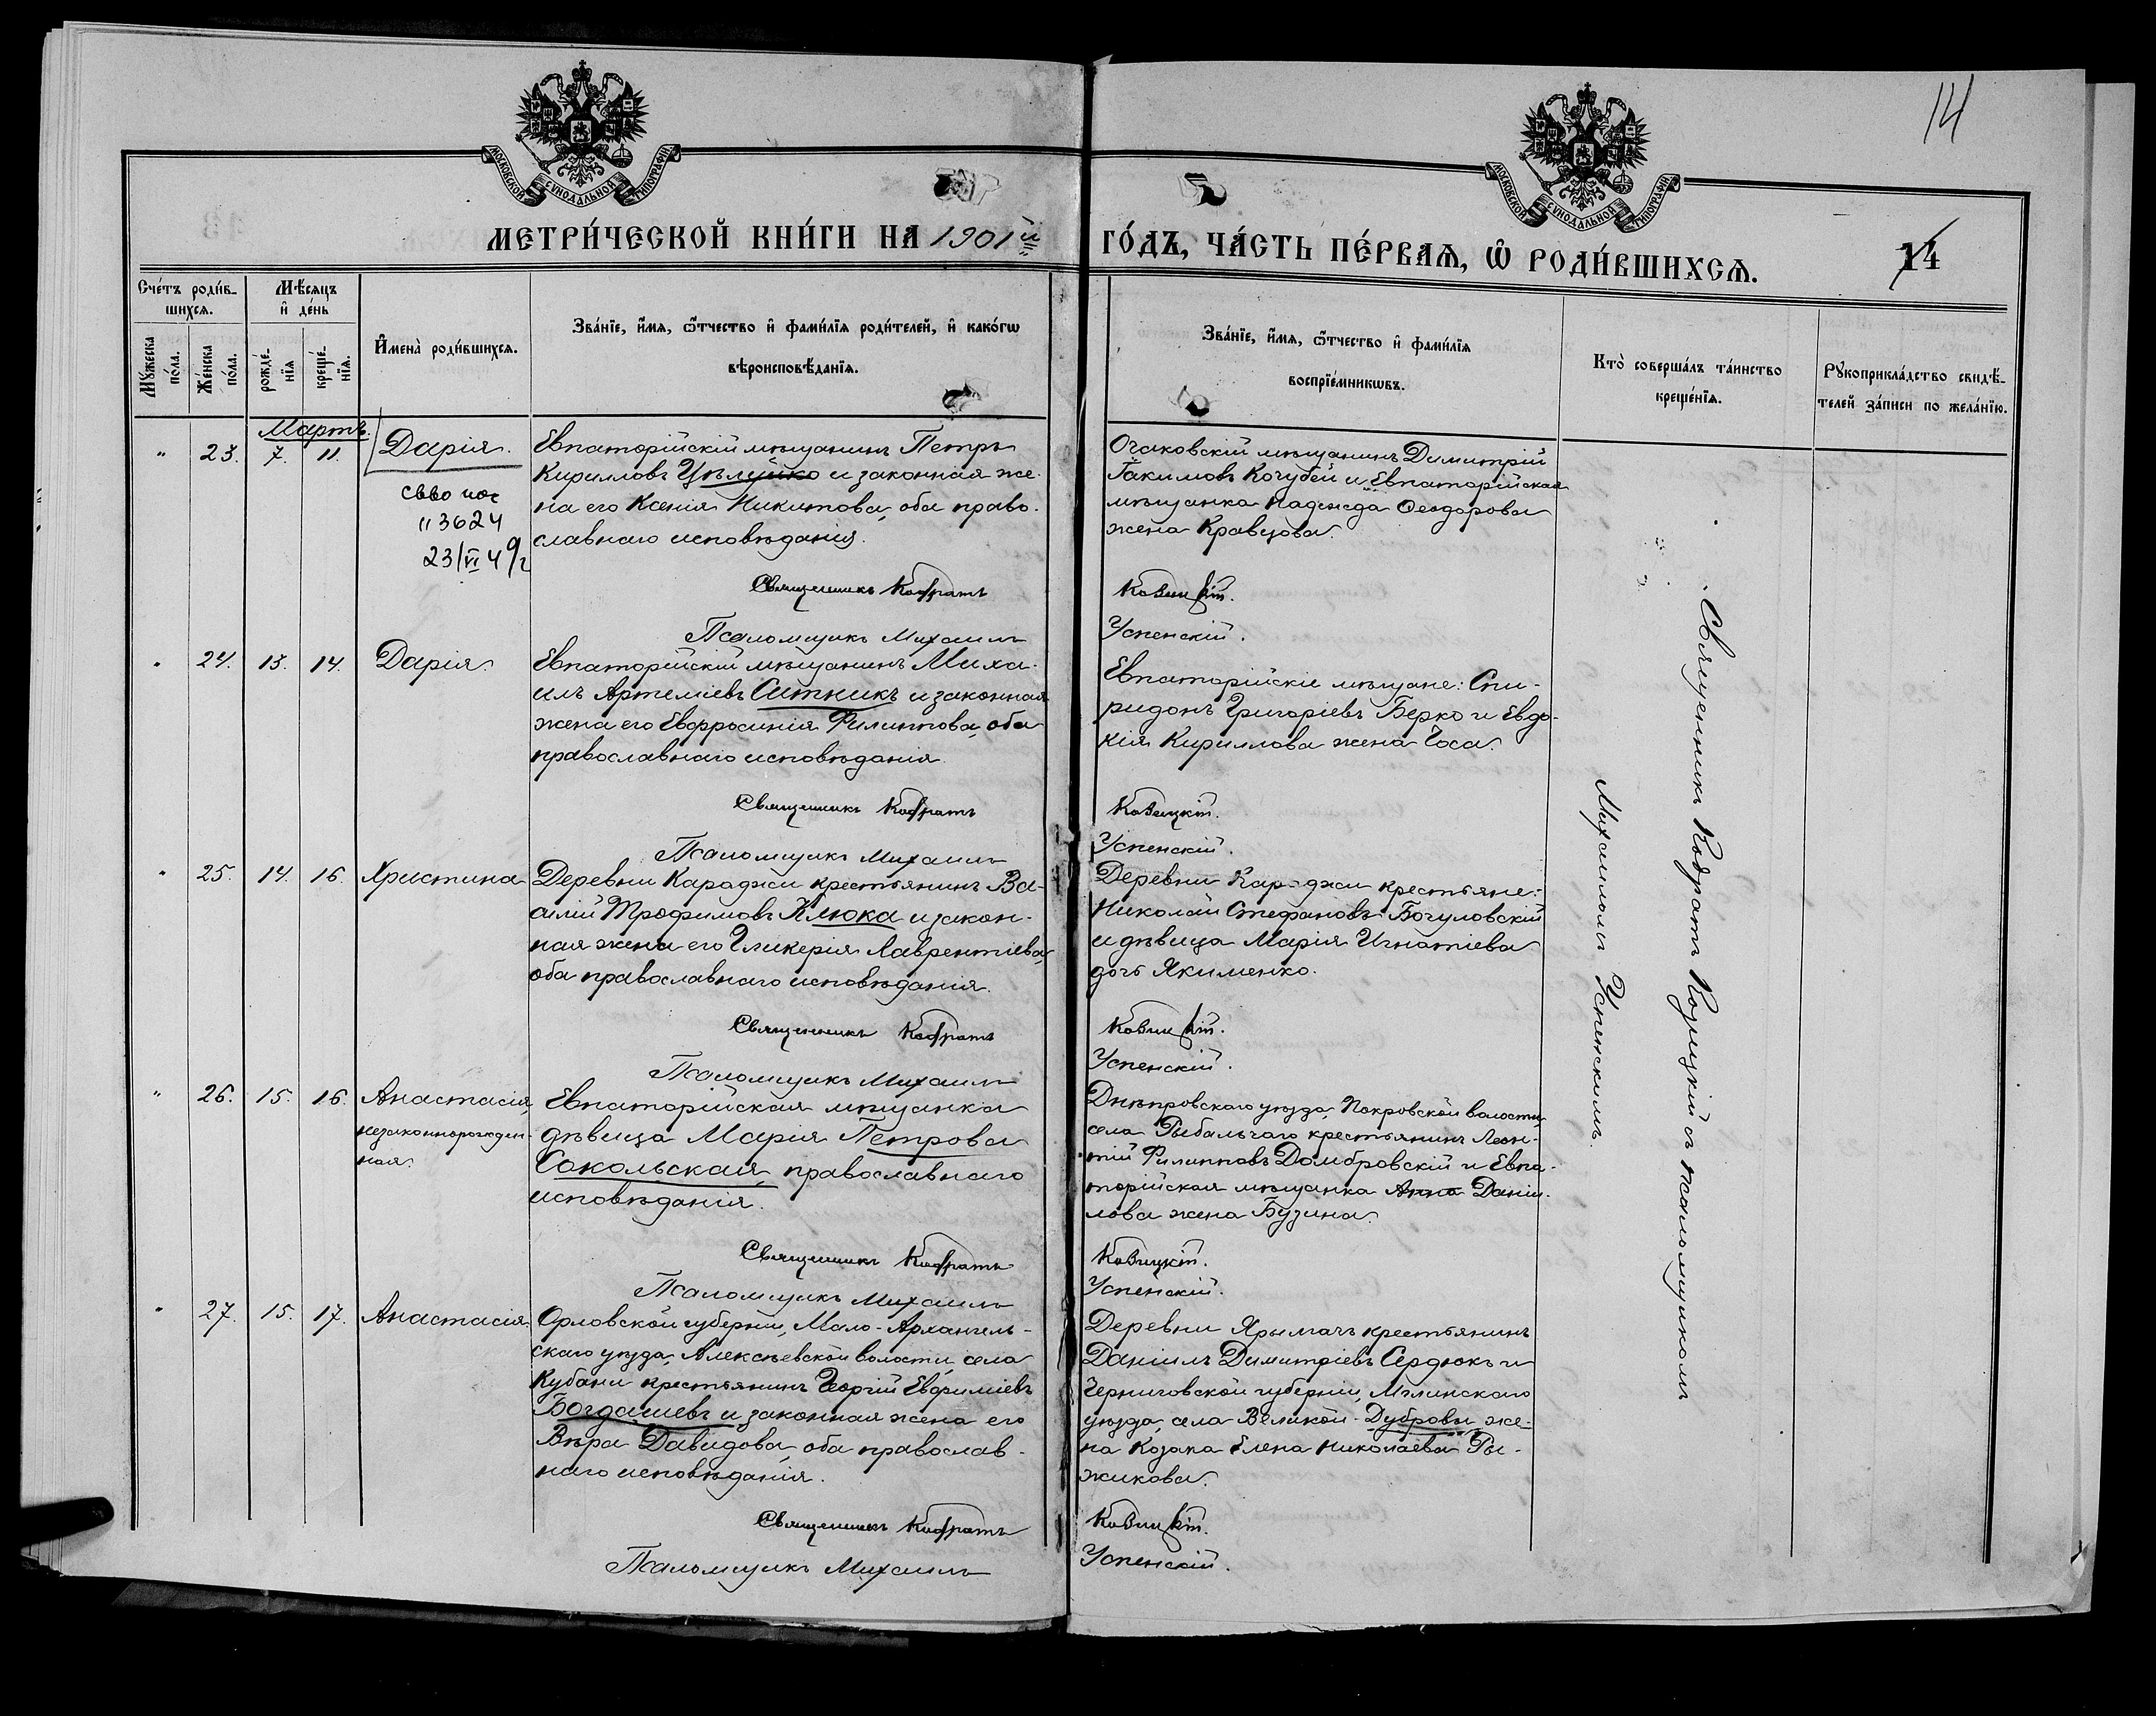 14
МОСКОВСКОЙ СѴНОДАЛЬНОЙ ТИПОГРАФІИ
МОСКОВСКОЙ СѴНОДАЛЬНОЙ ТИПОГРАФІИ
МЕТРИ́ЧЕСКОЙ КНИ́ГИ НА 1901й
ГО́ДЪ, ЧА́СТЬ ПЕ́РВАѦ, Ѡ РОДИ́ВШИХСѦ.
14
Сче́тъ роди́в-
шихсѧ.
Мѣ́сяцъ
и҆ де́нь
Мꙋ́жеска по́ла.
Же́нска по́ла.
рожде́-
нїѧ
креще́-
нїѧ.
И҆мена̀ роди́вшихсѧ.
Зва́нїе, и҆́мѧ, ѻ҆́тчество и҆ фами́лїѧ роди́телей, и҆ како́гѡ
вѣроисповѣ́данїѧ.
Зва́нїе, и҆́мѧ, ѻ҆́тчество и҆ фами́лїѧ
воспрїе́мникѡвъ.
Кто̀ соверша́лъ та́инство
креще́нїѧ.
Рꙋкоприкла́дство свидѣ́-
телей за́писи по жела́нїю.
Мартъ.
" 23. 7. 11. Дарія.
Евпаторійскій мѣщанинъ Петръ
Кирилловъ Цѣлуйко и законная же-
на его Ксенія Никитова, оба право-
славнаго исповѣданія.
св-во
113624
23/VI 49г
Священникъ Кодратъ
Псаломщикъ Михаилъ
Очаковскій мѣщанинъ Димитрій
Іакимовъ Кочубей и Евпаторійская
мѣщанка Надежда Ѳеодорова
жена Кравцова.
Козицкій.
Успенскій.
" 24. 13. 14. Дарія.
Евпаторійскій мѣщанинъ Миха-
илъ Артеміевъ Ситникъ и законная
жена его Евфросинія Филиппова, оба
православнаго исповѣданія.
Священникъ Кодратъ
Псаломщикъ Михаилъ
Евпаторійскіе мѣщане: Спи-
ридонъ Григоріевъ Берко и Евдо-
кія Кириллова жена Чоса.
Козицкій.
Успенскій.
" 25. 14. 16. Христина
Деревни Караджи крестьянинъ Ва-
силій Трофимовъ Клюка и закон-
ная жена его Гликерія Лаврентіева,
оба православнаго исповѣданія.
Священникъ Кодратъ
Псаломщикъ Михаилъ
Деревни Караджи крестьяне:
Николай Стефановъ Богуловскій
и дѣвица Марія Игнатіева
дочь Якименко.
Козицкій.
Успенскій.
" 26. 15. 16. Анастасія,
незаконнорожден-
ная.
Евпаторійская мѣщанка
дѣвица Марія Петрова
Сокольская, православнаго
исповѣданія.
Священникъ Кодратъ
Псаломщикъ Михаилъ
Днѣпровскаго уѣзда, Покровской волости,
села Рыбальчаго крестьянинъ Леон-
тій Филипповъ Домбровскій и Евпа-
торійская мѣщанка Анна Даніи-
лова жена Бузина.
Козицкій.
Успенскій.
" 27. 15. 17. Анастасія
Орловской губерніи, Мало-Архангель-
скаго уѣзда, Алексѣевской волости, села
Кубани крестьянинъ Георгій Евфиміевъ
Богдашевъ и законная жена его
Вѣра Давидова, оба православ-
наго исповѣданія.
Священникъ Кодратъ
Псаломщикъ Михаилъ
Деревни Ярымачъ крестьянинъ
Даніилъ Димитріевъ Сердюкъ и
Черниговской губерніи, Мглинскаго
уѣзда, села Великой-Дубровы же-
на козака Елена Николаева Ры-
жикова.
Козицкій.
Успенскій.
Священникъ Кодратъ Козицкій съ псаломщикомъ
Михаиломъ Успенскимъ.